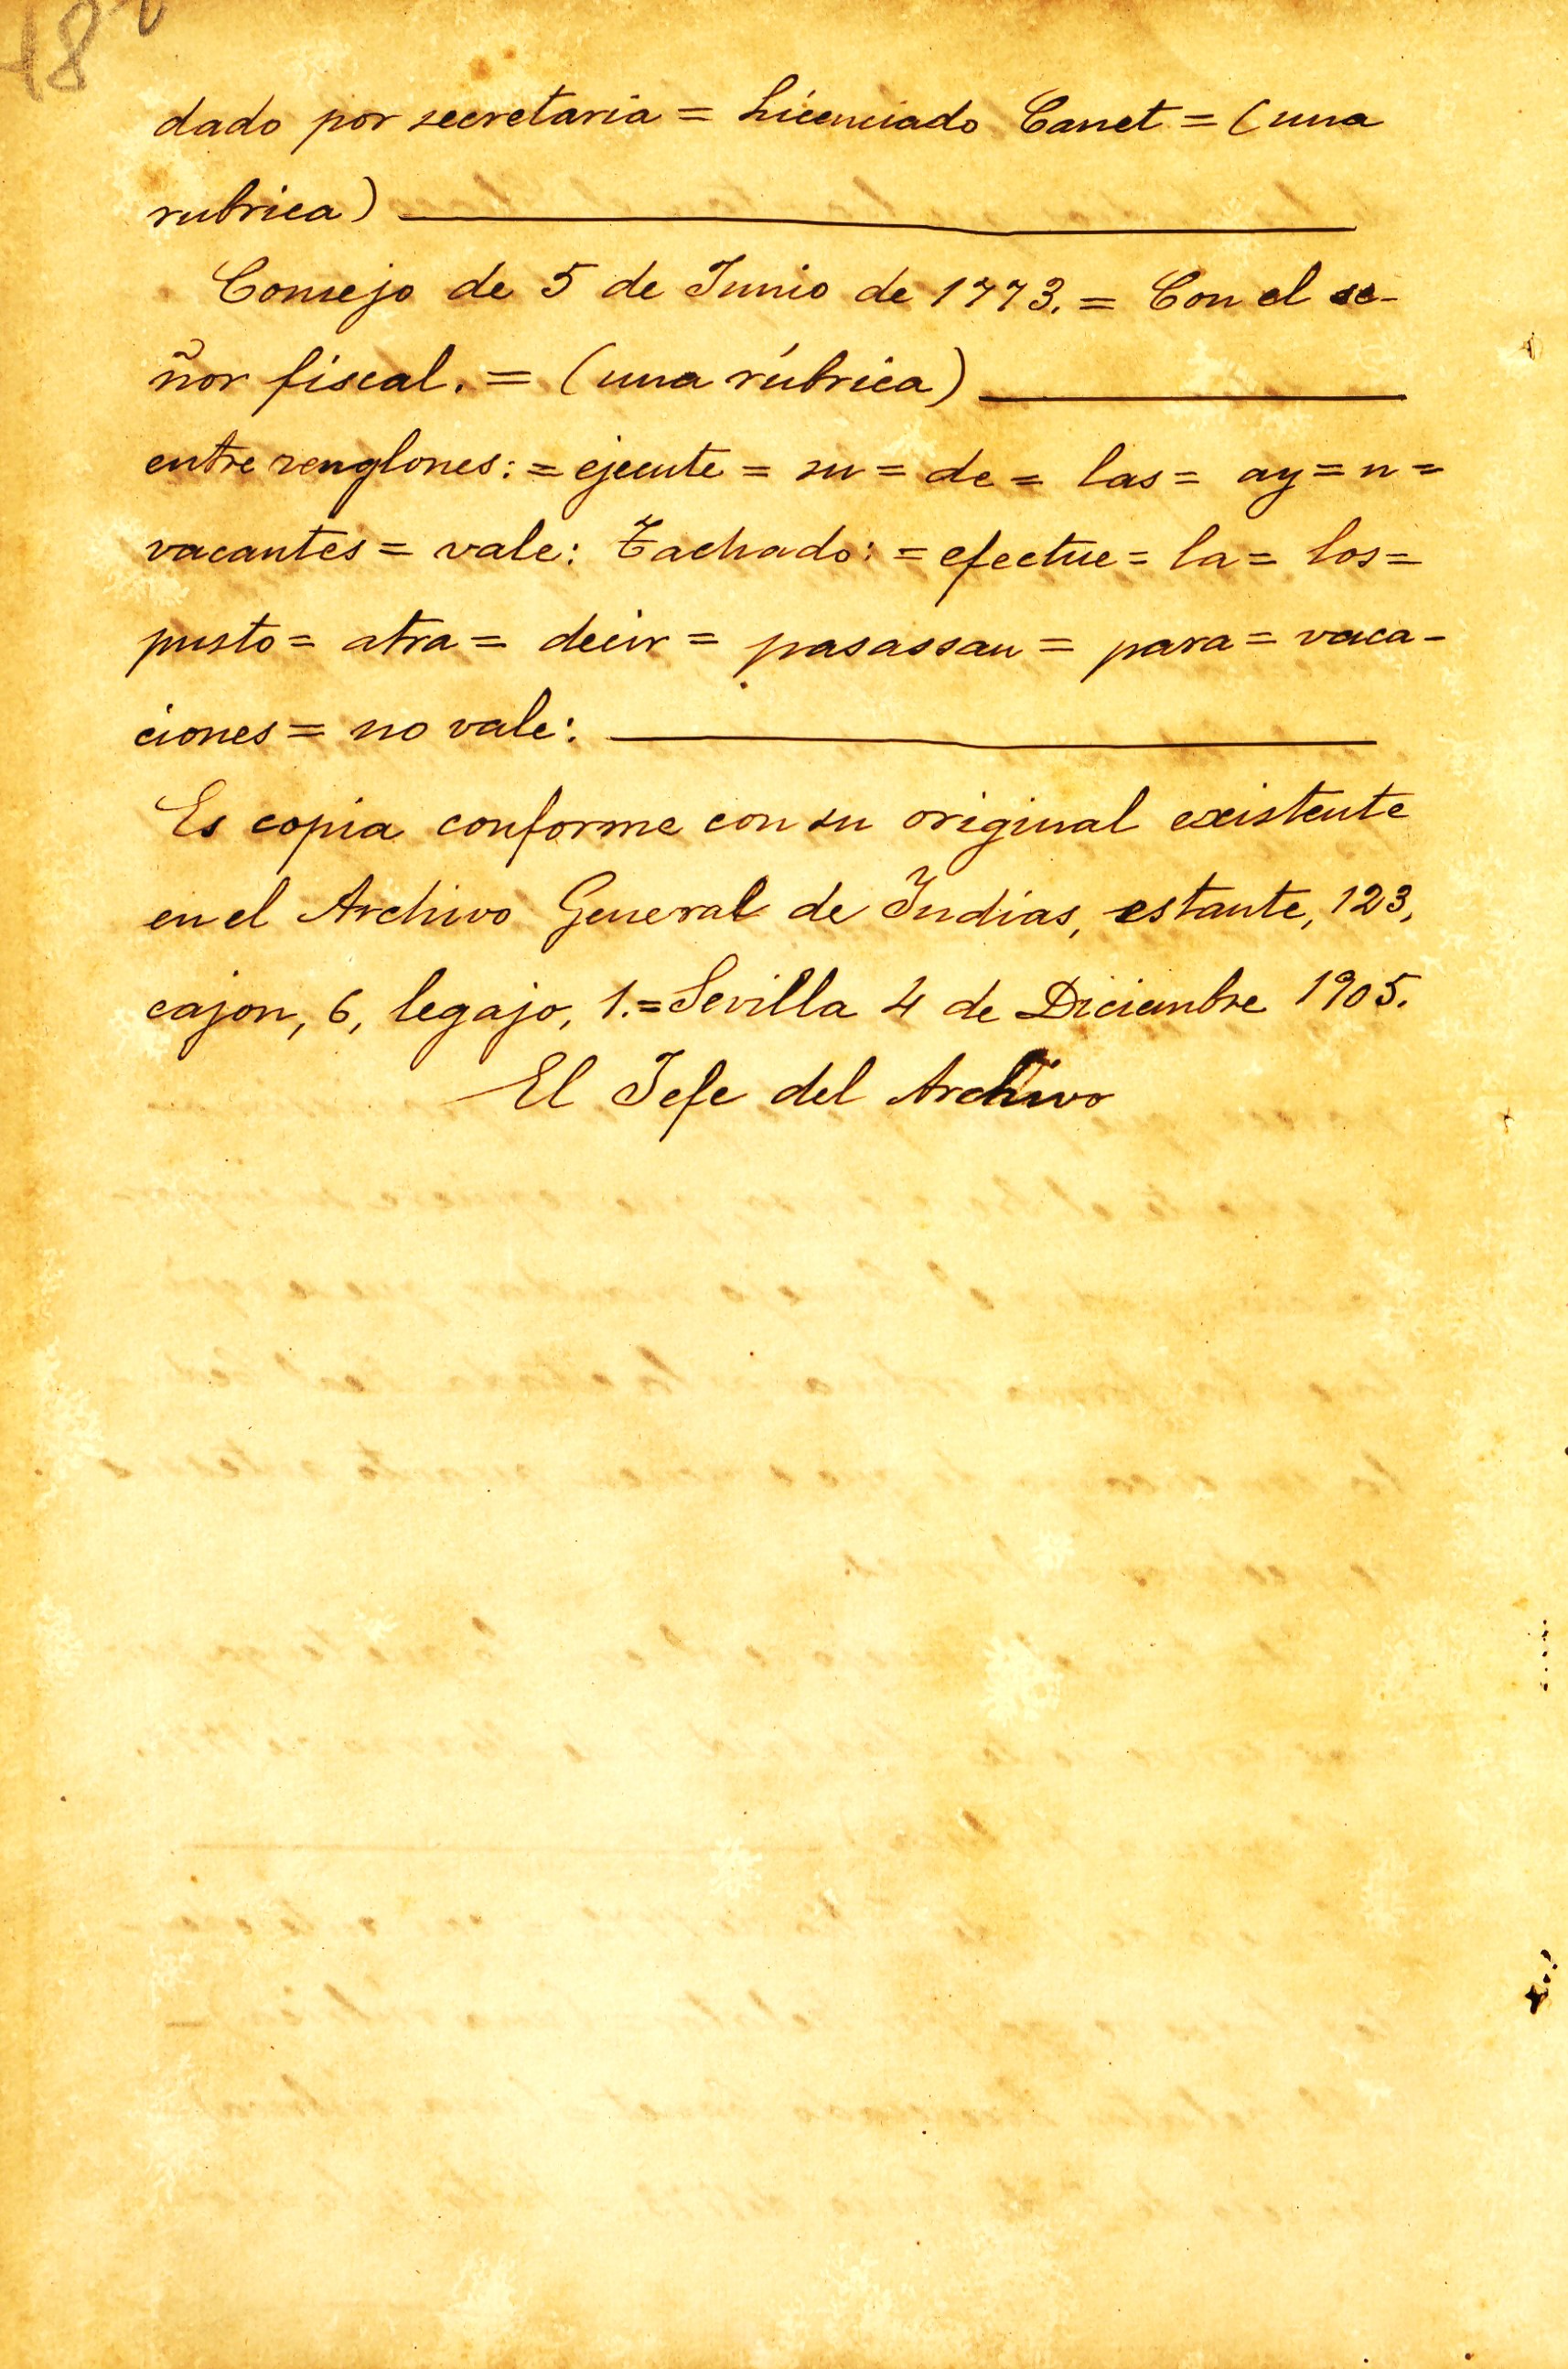 18
dado por secretaria = Licenciado Canet = (una
rubrica)
Consejo de 5 de Junio de 1773. = Con el se-
ñor fiscal. = (una rúbrica)
entre renglones: = ejecute = su = de = las = ay = n =
vacantes = vale: Tachado: = efectue = la = los =
pusto = atra = decir = pasassan = para = vaca-
ciones = no vale:
Es copia conforme con su original existente
en el Archivo General de Indias, estante, 123,
cajon, 6, legajo, 1. = Sevilla 4 de Diciembre 1905.
El Jefe del Archivo